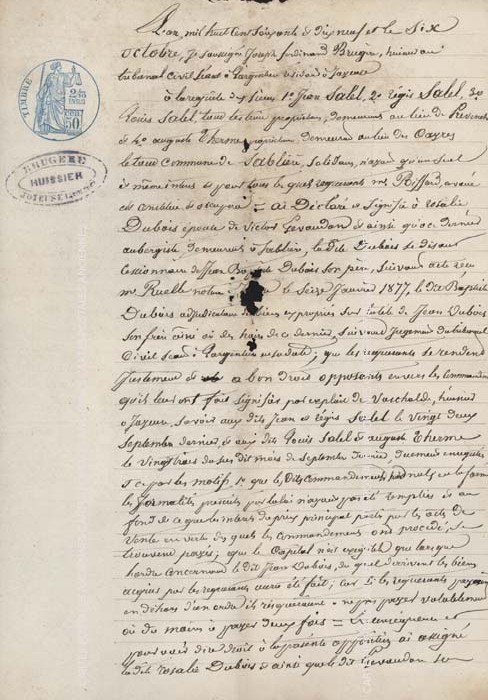 L'an mil huit cent soixante & dix neuf et le Six
octobre, Je soussigné Joseph ferdinand Brugère, huissier au
tribunal civil séant à Largentière résidant à Joyeuse
à la requête des sieurs 1° Jean Salel, 2° régis Salel, 3°
Louis Salel, tous les trois propriétaires, demeurant au lieu de
& 4° auguste Therme propriétaire demeurant au lieu des
le tout commune de Sablières, Solidairs n'ayant qu'un seul
& même intérêt & pour tous lesquels requérants me Riffard avoué
est constitué & occupera = ai Déclaré & Signifié à rosalie
Dubois épouse de victor Gevaudan & ainsi qu'à ce dernier
aubergiste demeurant à Sablières, la dite Dubois se disant
cessionnaire de Jean Baptiste Dubois son père, suivant acte reçu
me Ruelle notaire le Seize Janvier 1877, le dit Baptiste
Dubois adjudicataire des biens expropriés sur la tête de Jean Dubois
son frère ou des hoirs de ce dernier, suivant Jugement du tribunal
Civil séant à Largentière ; que les requérants se rendent
Justement & a bon droit opposants envers les commandements
qu'ils leur ont fait signifier par exploit de Vaschalde, huissier
à Joyeuse, savoir aux dits Jean et régis Salel le vingt deux
Septembre dernier & aux dits Louis Salel & auguste Therme
le vingt trois du susdit mois de Septembre dernier
& ce par les motifs, 1° que les dits Commandements sont nuls en la forme
les formalités prescrites par la loi n'ayant pas été remplies & au
fond & ce que les intérêts du prix principal portés par les actes de
Vente en vertu des quels les commandements ont procédé, se
trouvent payés ; que le Capital n'est exigible que lorsque
l'ordre concernant le dit Jean Dubois, du quel dérivent les biens
acquis par les requérants aura été fait ; car si les requérants payaient
en dehors d'un ordre ils risqueraient ne pas payer valablement
ou du moins à payer deux fois =
pour voir dire droit à la présente opposition ai assigné
la dite rosalie Dubois & ainsi que le dit Gevaudan son
TIMBRE
50
BRUGÈRE
HUISSIER
JOYEUSE